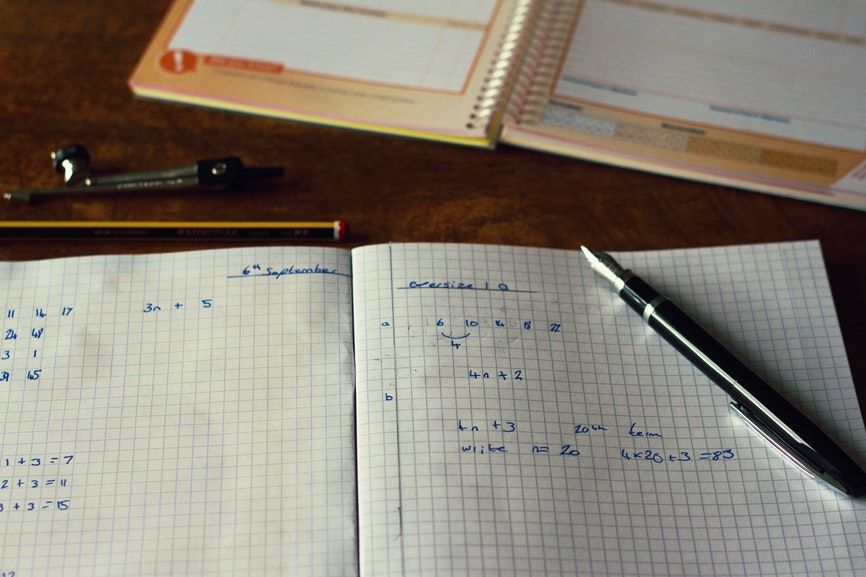 6th September
11 14 17 3n + 5
24 48
3 1
39 45
1 + 3 = 7
2 + 3 = 11
3 + 3 = 15
exersize 1 a
a 6 10 14 18 22
4
4n + 2
b
4n + 3 20th term
write n= 20 4×20+3 =83